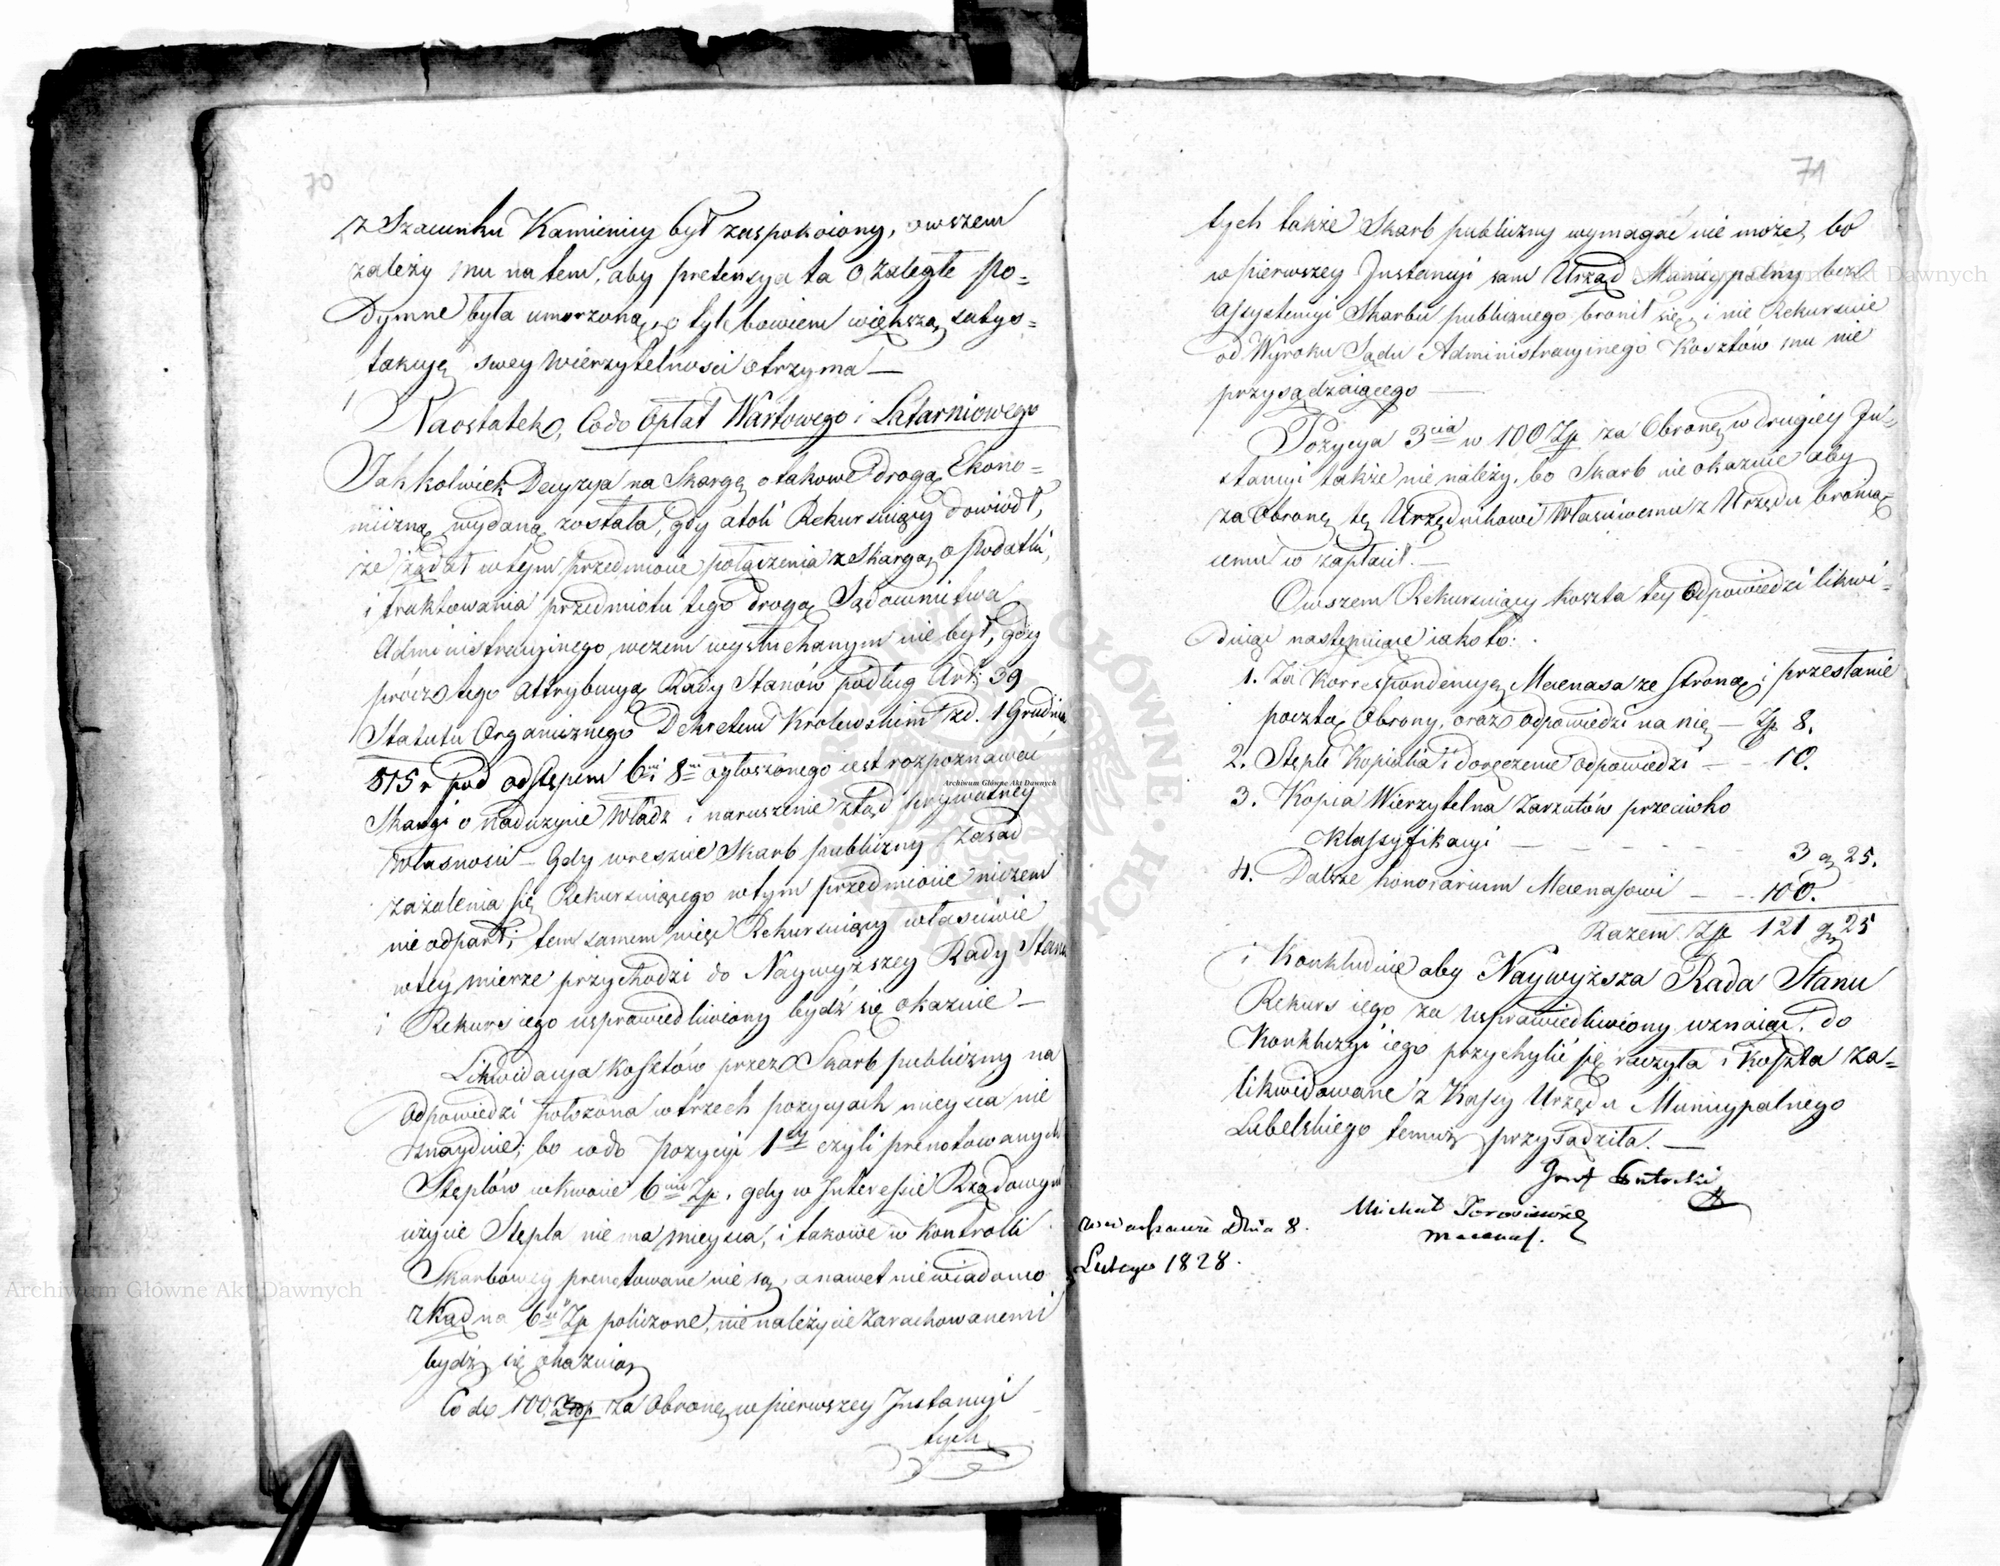 70
z Szacunku Kamienicy był zaspokoiony, owszem
zależy mu na tem, aby pretensya ta o zaległe Po-
dymne była umorzoną, o tyle bowiem większą satys-
takcyę swey Wierzytelności otrzyma —
Naostatek, Codo Opłat Wartowego i Latarniowego
Jakkolwiek Decyzya na Skargę o takowe drogą Ekono-
miczną wydaną została, gdy atoli Rekursuiący dowiódł,
że żądał w tym przedmiocie połączenia ze Skargą o Podatki,
i traktowania przedmiotu tego drogą Sądownictwa
Administracyinego, wczem wysłuchanym nie był, gdy
prócz tego attrybucyą Rady Stanów podług Art: 39
Statutu Organicznego Dekretem Królewskim zd. 1 Grudnia
815 r pod odstępem 6m i 8m ogłoszonego iest rozpoznawać
Skargi o nadużycie Władz i naruszenie ztąd prywatney
Własności — Gdy wreszcie Skarb publiczny Zasad
zażalenia się Rekursuiącego w tym przedmiocie niczem
nie odparł; tem samem więc Rekursuiący właściwie
w tey mierze przychodzi do Naywyższey Rady Stanu
i Rekurs iego usprawiedliwiony bydź się okazuie —
Likwidacya kosztów przez Skarb publiczny na
odpowiedzi położona w trzech pozycyach mieysca nie
znayduie; bo codo pozycyi 1ey czyli prenotowanych
Stęplów w kwocie 6ciu Zp. gdy w Interessie Rządowym
użycie Stępla nie ma mieysca, i takowe w Kontrolli
Skarbowey prenotowane nie są, a nawet niewiadomo
zkąd na 6ć Zp policzone, nie należycie zarachowanemi
bydź się okazuią
Co do 100 Złp za Obronę w pierwszey Instancyi
tych
71
tych także Skarb publiczny wymagać nie może, bo
w pierwszey Instancyi sam Urząd Municypalny bez
assystencyi Skarbu publicznego bronił się, i nie Rekursuie
od Wyroku Sądu Administracyinego Kosztów mu nie
przysądzaiącego —
Pozycya 3cia w 100 Zp za Obronę w drugiey In-
stancyi także nie należy, bo Skarb nie okazuie aby
za Obronę tę Urzędnikowi Właściwemu z Urzędu bronią-
cemu co zapłacił. —
Owszem Rekursuiący koszta tey Odpowiedzi likwi-
duiąc następuiące iako to:
1. Za Korrespondencyą Mecenasa ze Stroną i przesłanie
pocztą Obrony, oraz odpowiedzi na nię — Zp 8.
2. Stęple Kopialia i doręczenie odpowiedzi — 10.
3. Kopia Wierzytelna Zarzutów przeciwko
Klassyfikacyi — — — — — 3 g 25.
4. Dalsze honorarium Mecenasowi — 100.
Razem Zp 121 gr 25
i Konkluduie aby Naywyższa Rada Stanu
Rekurs iego za usprawiedliwiony uznaiąc, do
Konkluzyi iego przychylić się raczyła i koszta za-
likwidowane z Kassy Urzędu Municypalnego
Lubelskiego temuż przysądziła. —
Michał
Mecenas.
w Warszawie Dnia 8.
Lutego 1828.
Archiwum Główne Akt Dawnych
Archiwum Główne Akt Dawnych
Archiwum Główne Akt Dawnych